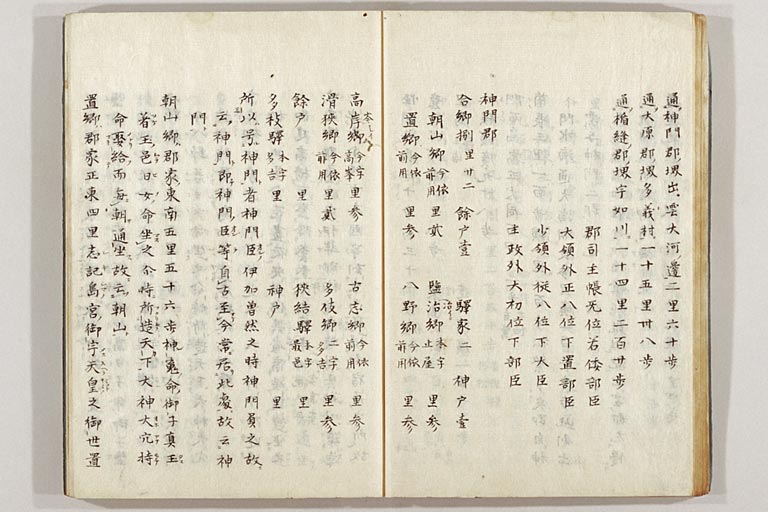 通神門郡堺出雲大河邊二里六十歩
通大原郡堺多義村一十五里卅八歩
通楯縫郡堺宇加川一十四里二百廿歩
郡司主帳无位若倭部臣
大領外正八位下置部臣
少領外従八位下大臣
主政外大初位下部臣
神門郡
合郷捌 里廿二 餘户壹 驛家二 神户壹
朝山郷 今依前用 里貳 鹽治郷 本字止屋 里参
置郷 今依前用 里参 八野郷 今依前用 里参
高岸郷 今字高峯 里参 古志郷 今依前用 里参
滑狭郷 今依前用 里貳 多伎郷 二字多吉 里参
餘户 里 狭結驛 本字最邑 里
多枝驛 本字多吉 里 神户 里
所以号神門者神門臣伊加曽然之時神門負之故
云神門即神門臣等自古至今常居此處故云神
門
朝山郷郡家東南五里五十六歩神魂命御子真玉
着玉邑日女命坐之尒時所造天下大神大穴持
命娶給而每朝通坐故云朝山
置郷郡家正東四里志記島宮御宇天皇之御世置